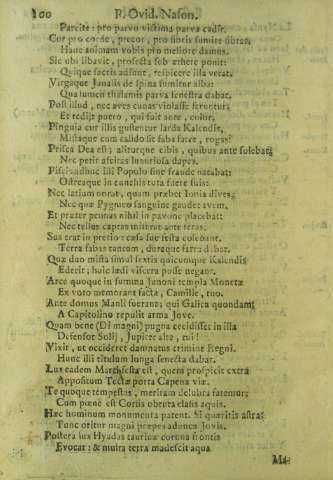 100 P. Ovid. Nason.
Parcite: pro parvo victima parva cadit.
Cor pro corde, precor, pro fibris sumite fibras,
Hanc animam vobis pro meliore damus.
Sic ubi libavit, prosecta sub æthere ponit:
Quique sacris adsunt, respicere illa vetat.
Virgaque Janalis de spina sumitur alba:
Qua lumen thalamis parva fenestra dabat.
Post illud, nec aves cunas violasse feruntur;
Et rediit puero, qui fuit ante, color.
Pinguia cur illis gustentur larda Kalendis,
Mistaque cum calido sit faba farre, rogas?
Prisca Dea est; aliturque cibis, quibus ante solebat;
Nec petit ascitas luxuriosa dapes.
Piscis adhuc illi Populo sine fraude natabat:
Ostreaque in conchis tuta fuere suis:
Nec latium norat, quam præbet Ionia dives;
Nec quæ Pygmæo sanguine gaudet avem.
Et præter pennas nihil in pavone placebat:
Nec tellus captas miserat ante feras.
Sus erat in pretio: cæsa sue festa colebant.
Terra fabas tantum, duraque farra dabat.
Quæ duo mista simul sextis quicumque Kalendis
Ederit; huic lædi viscera posse negant.
Arce quoque in summa Junoni templa Monetæ
Ex voto memorant facta, Camille, tuo.
Ante domus Manli fuerant; qui Galica quondam
A Capitolino repulit arma Jove.
Quam bene (Di magni) pugna cecidisset in illa
Defensor Solii, Jupiter alte, tui!
Vixit, ut occideret damnatus crimine Regni.
Hunc illi titulum longa senecta dabat.
Lux eadem Marti festa est, quem prospicit extra
Appositum Tectæ porta Capena viæ.
Te quoque tempestas, meritam delubra fatemur;
Cum pœne est Corsis obruta classis aquis.
Hæc hominum monumenta patent. Si quæritis astra:
Tunc oritur magni præpes adunca Jovis.
Postera lux Hyadas taurinæ cornua frontis
Evocat: & multa terra madescit aqua